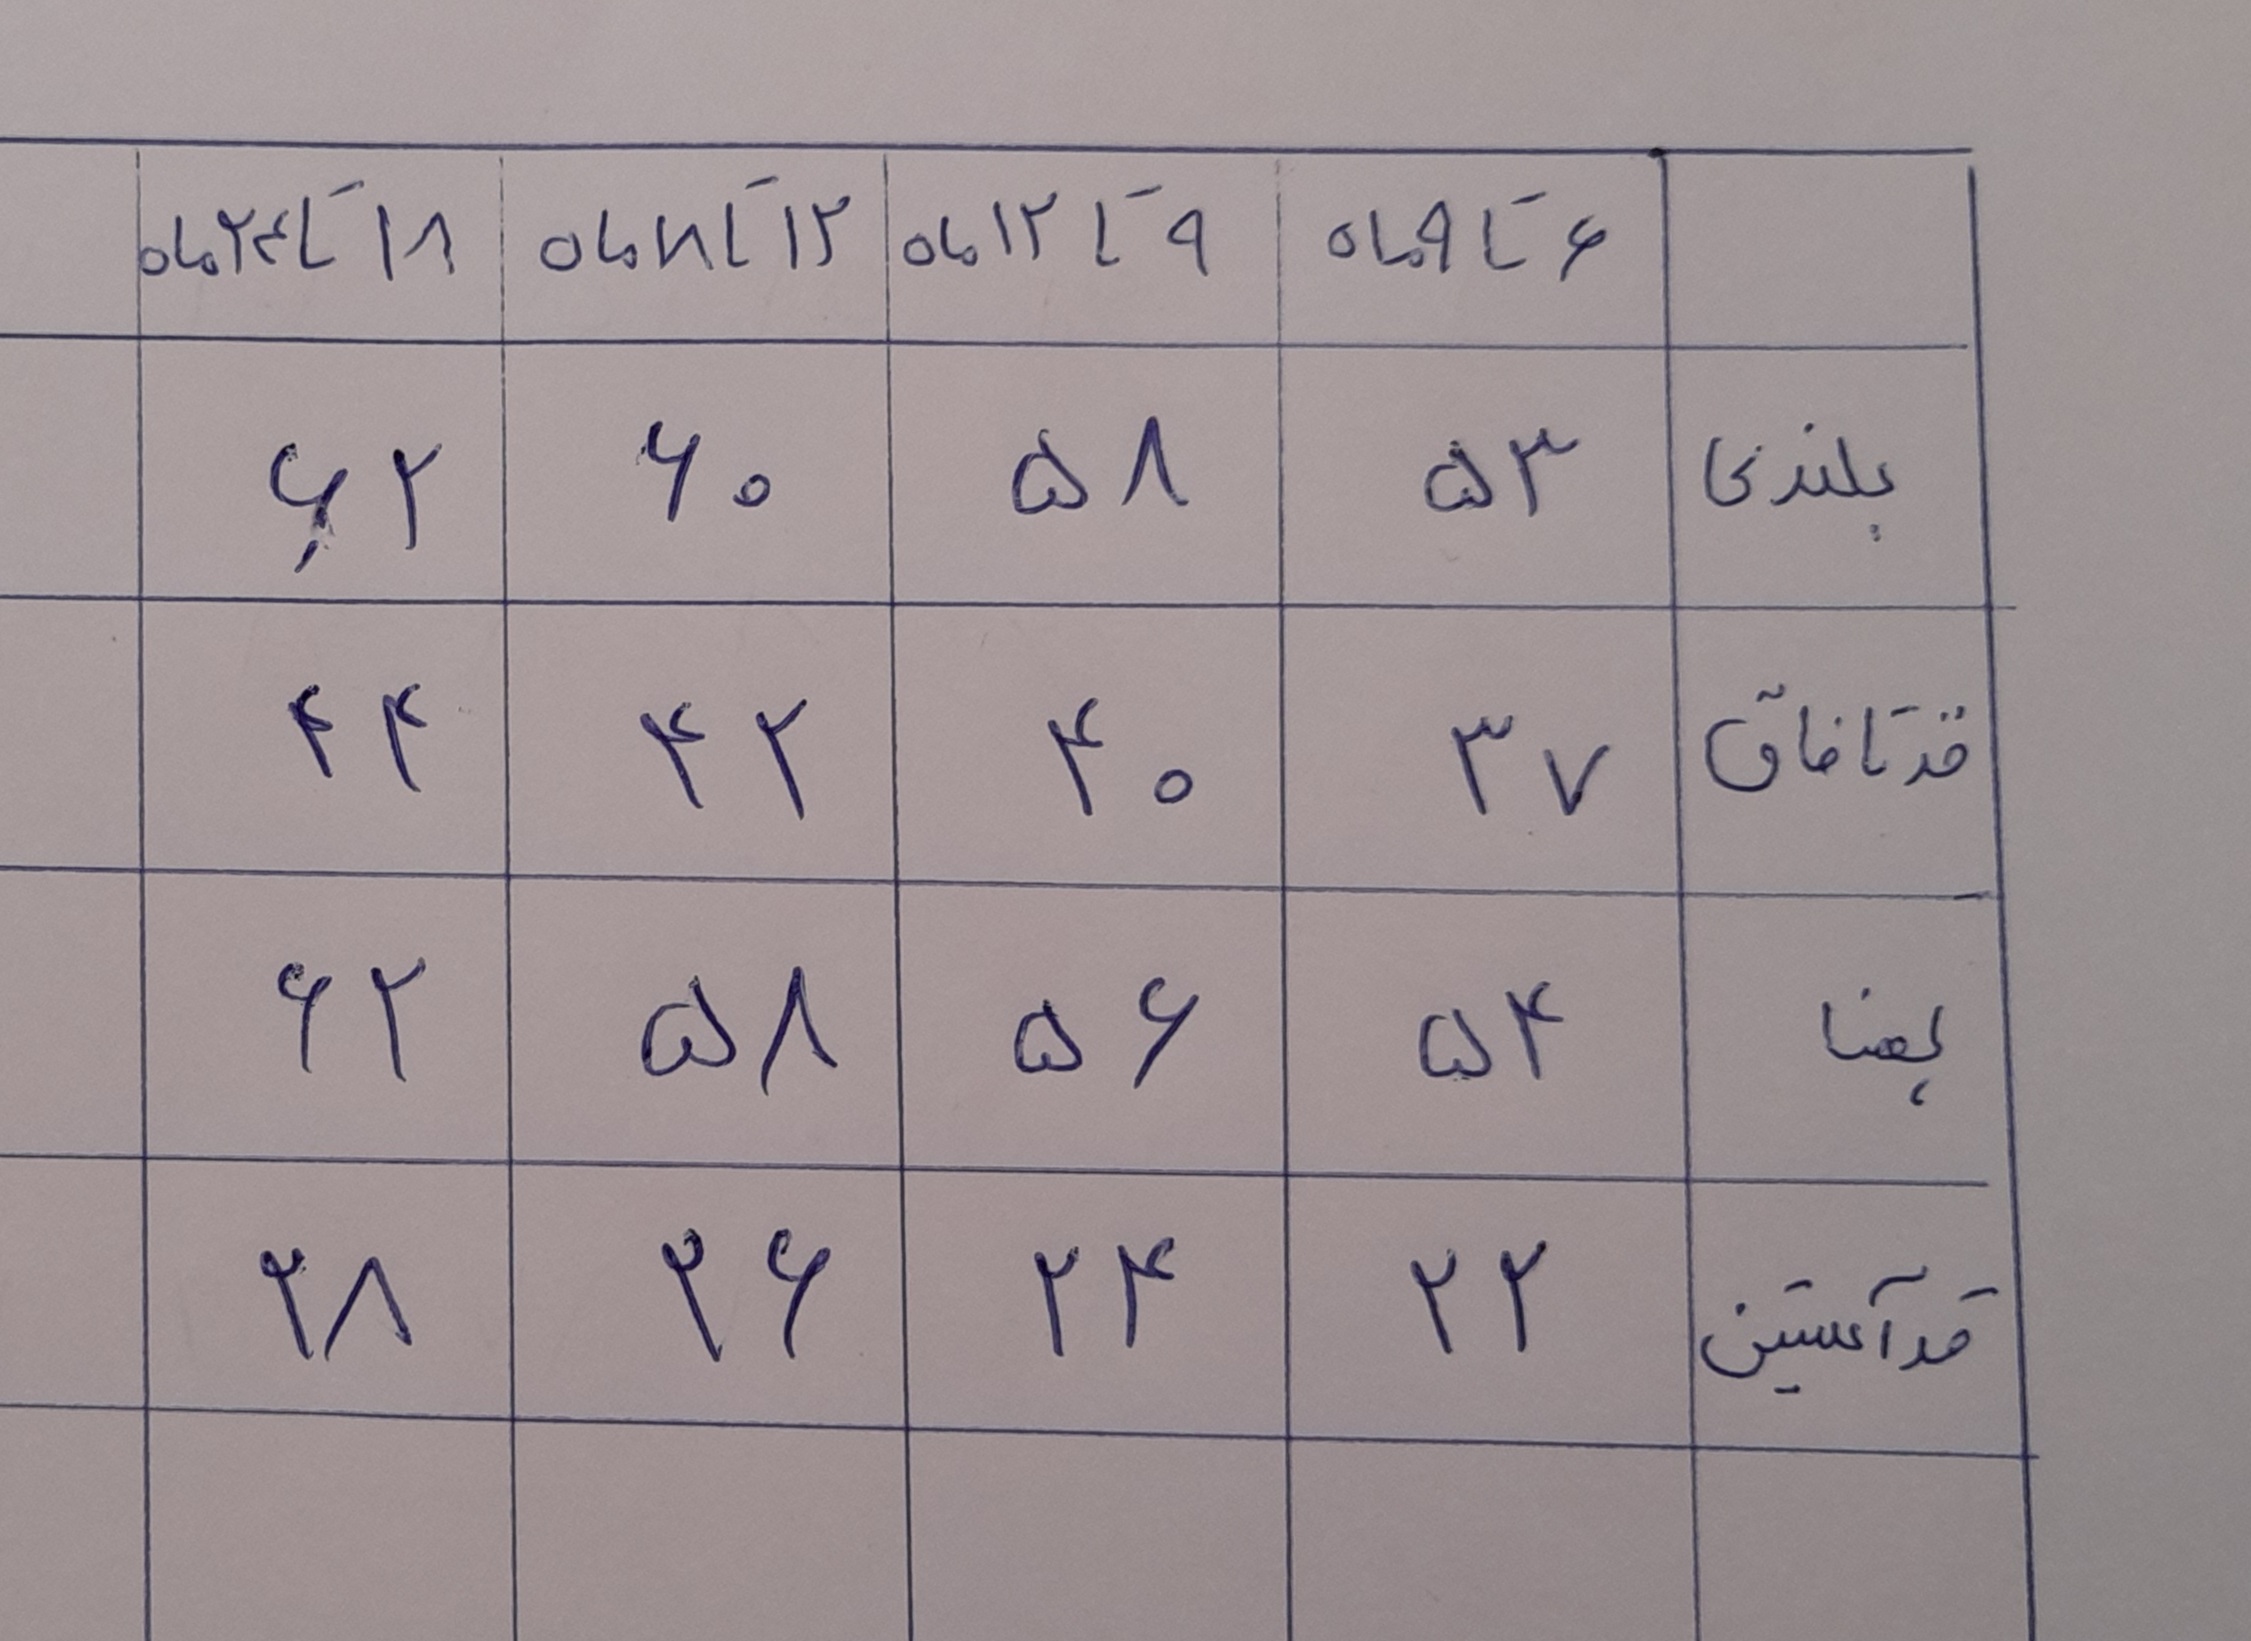 ۶ تا ۹ ماه ۹ تا ۱۲ ماه ۱۲ تا ۱۸ ماه ۱۸ تا ۲۴ ماه
بلندی ۵۳ ۵۸ ۶۰ ۶۲
قد تا فاق ۳۷ ۴۰ ۴۲ ۴۴
پهنا ۵۴ ۵۶ ۵۸ ۶۲
قد آستین ۲۲ ۲۴ ۲۶ ۲۸